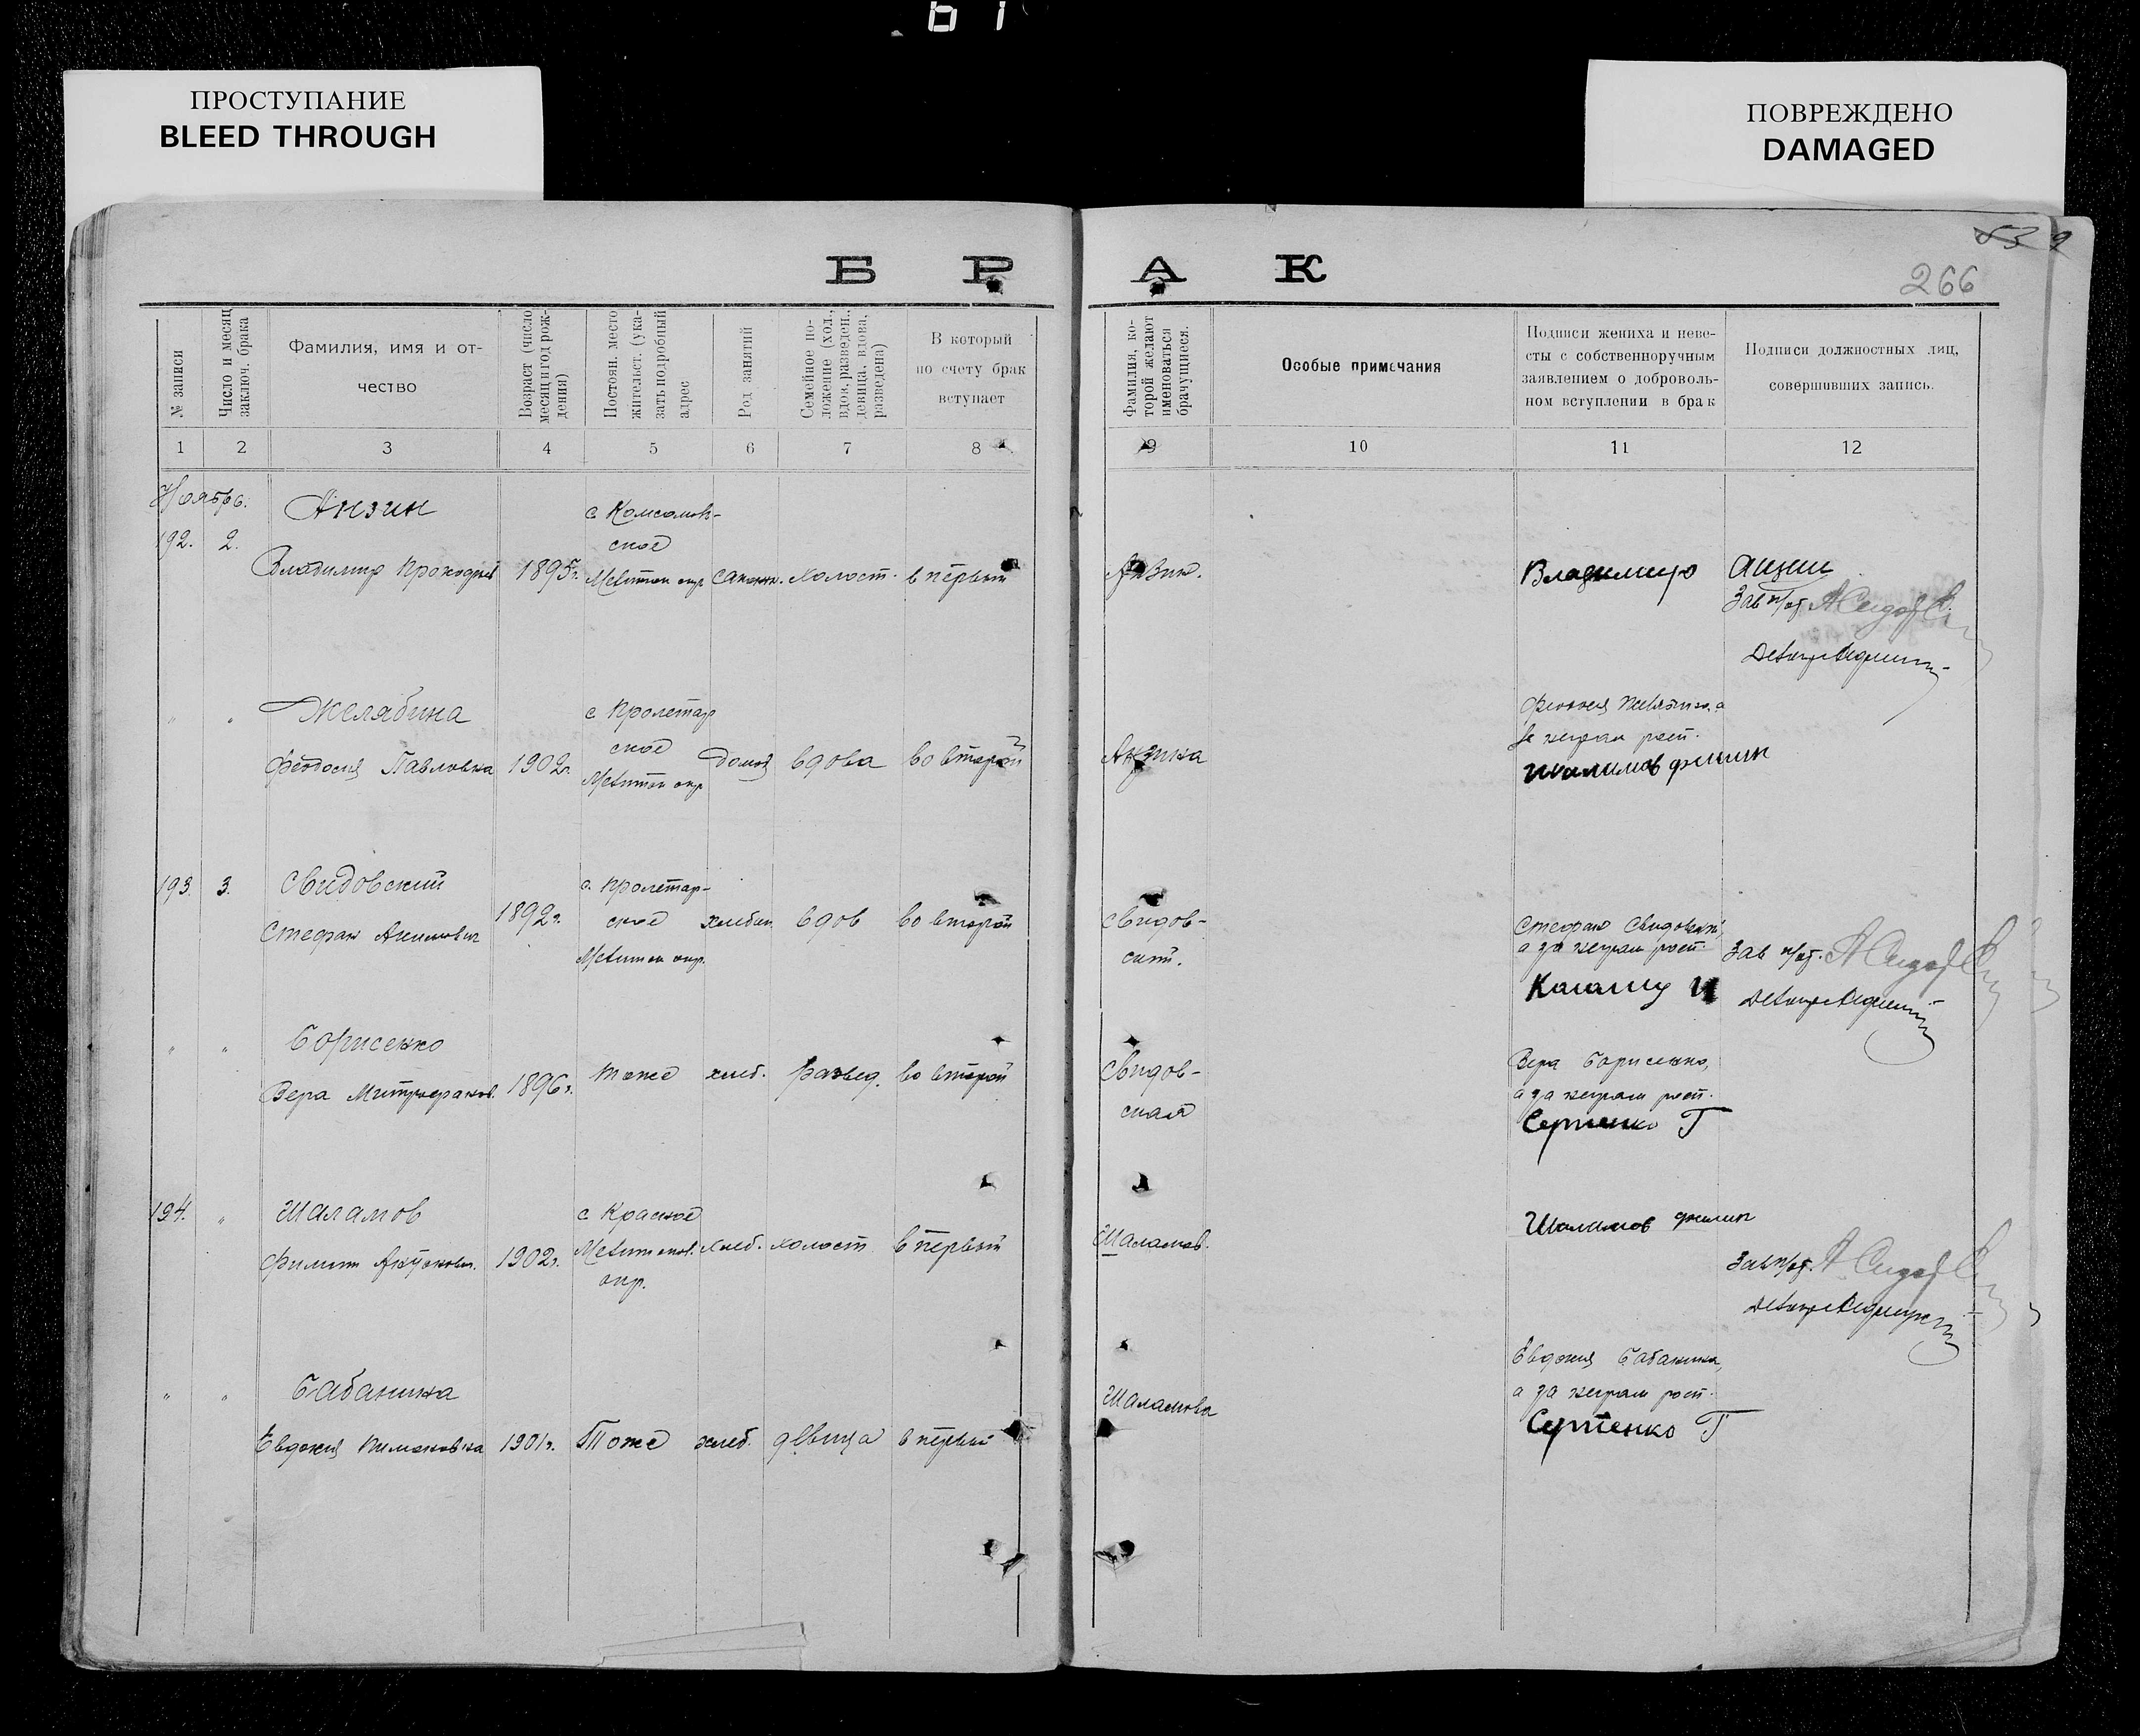 61
ПРОСТУПАНИЕ
BLEED THROUGH
ПОВРЕЖДЕНО
DAMAGED
БРАК
266
№ записи
Число и месяц
заключ. брака
Фамилия, имя и от-
чество
Возраст (число
месяц и год рож-
дения)
Постоян. место
жительст. (ука-
зать подробный
адрес
Род занятий
Семейное по-
ложение (хол.,
вдов. разведен.,
девица, вдова,
разведена)
В который
по счету брак
вступает
Фамилия, ко-
торой желают
именоваться
брачущиеся.
Особые примечания
Подписи жениха и неве-
сты с собственноручным
заявлением о доброволь-
ном вступлении в брак
Подписи должностных лиц,
совершивших запись.
1 2 3 4 5 6 7 8 9 10 11 12
Ноябрь.
192. 2.
Анзин
Владимир
1895г.
с Комсомоль-
ское
Мелитоп окр
холост.
в первый
Анзин.
Владимир Анзин
Зав п/от.
" "
Желябина
Феодосия Павловна
1902г.
с Пролетар
ское
Мелитоп окр
домоз
вдова
во второй
Анзина
Шалимов Филип
193. 3.
Свидовский
Стефан Акимович
1892г.
с. Пролетар-
ское
Мелитоп окр.
вдов
во второй
Свидов-
ский.
Стефан Свидовский,
а за неграм росп.
Зав п/от.
" "
Борисенко
Вера Митрофанов.
1896г.
тоже
хлеб.
развед.
во второй
Свидов-
ская
Вера Борисенко,
а за неграм росп.
Сергиенко Г
194. "
Шаламов
Филипп
1902г.
с Красное
Мелитопол.
окр.
хлеб.
холост
в первый
Шаламов.
Шалимов Филип
Зав п/от.
" "
Бабанина
Евдокия
1901г.
Тоже
хлеб.
девица
в первый
Шаламова
Евдокия Бабанина,
а за неграм росп.
Сергиенко Г